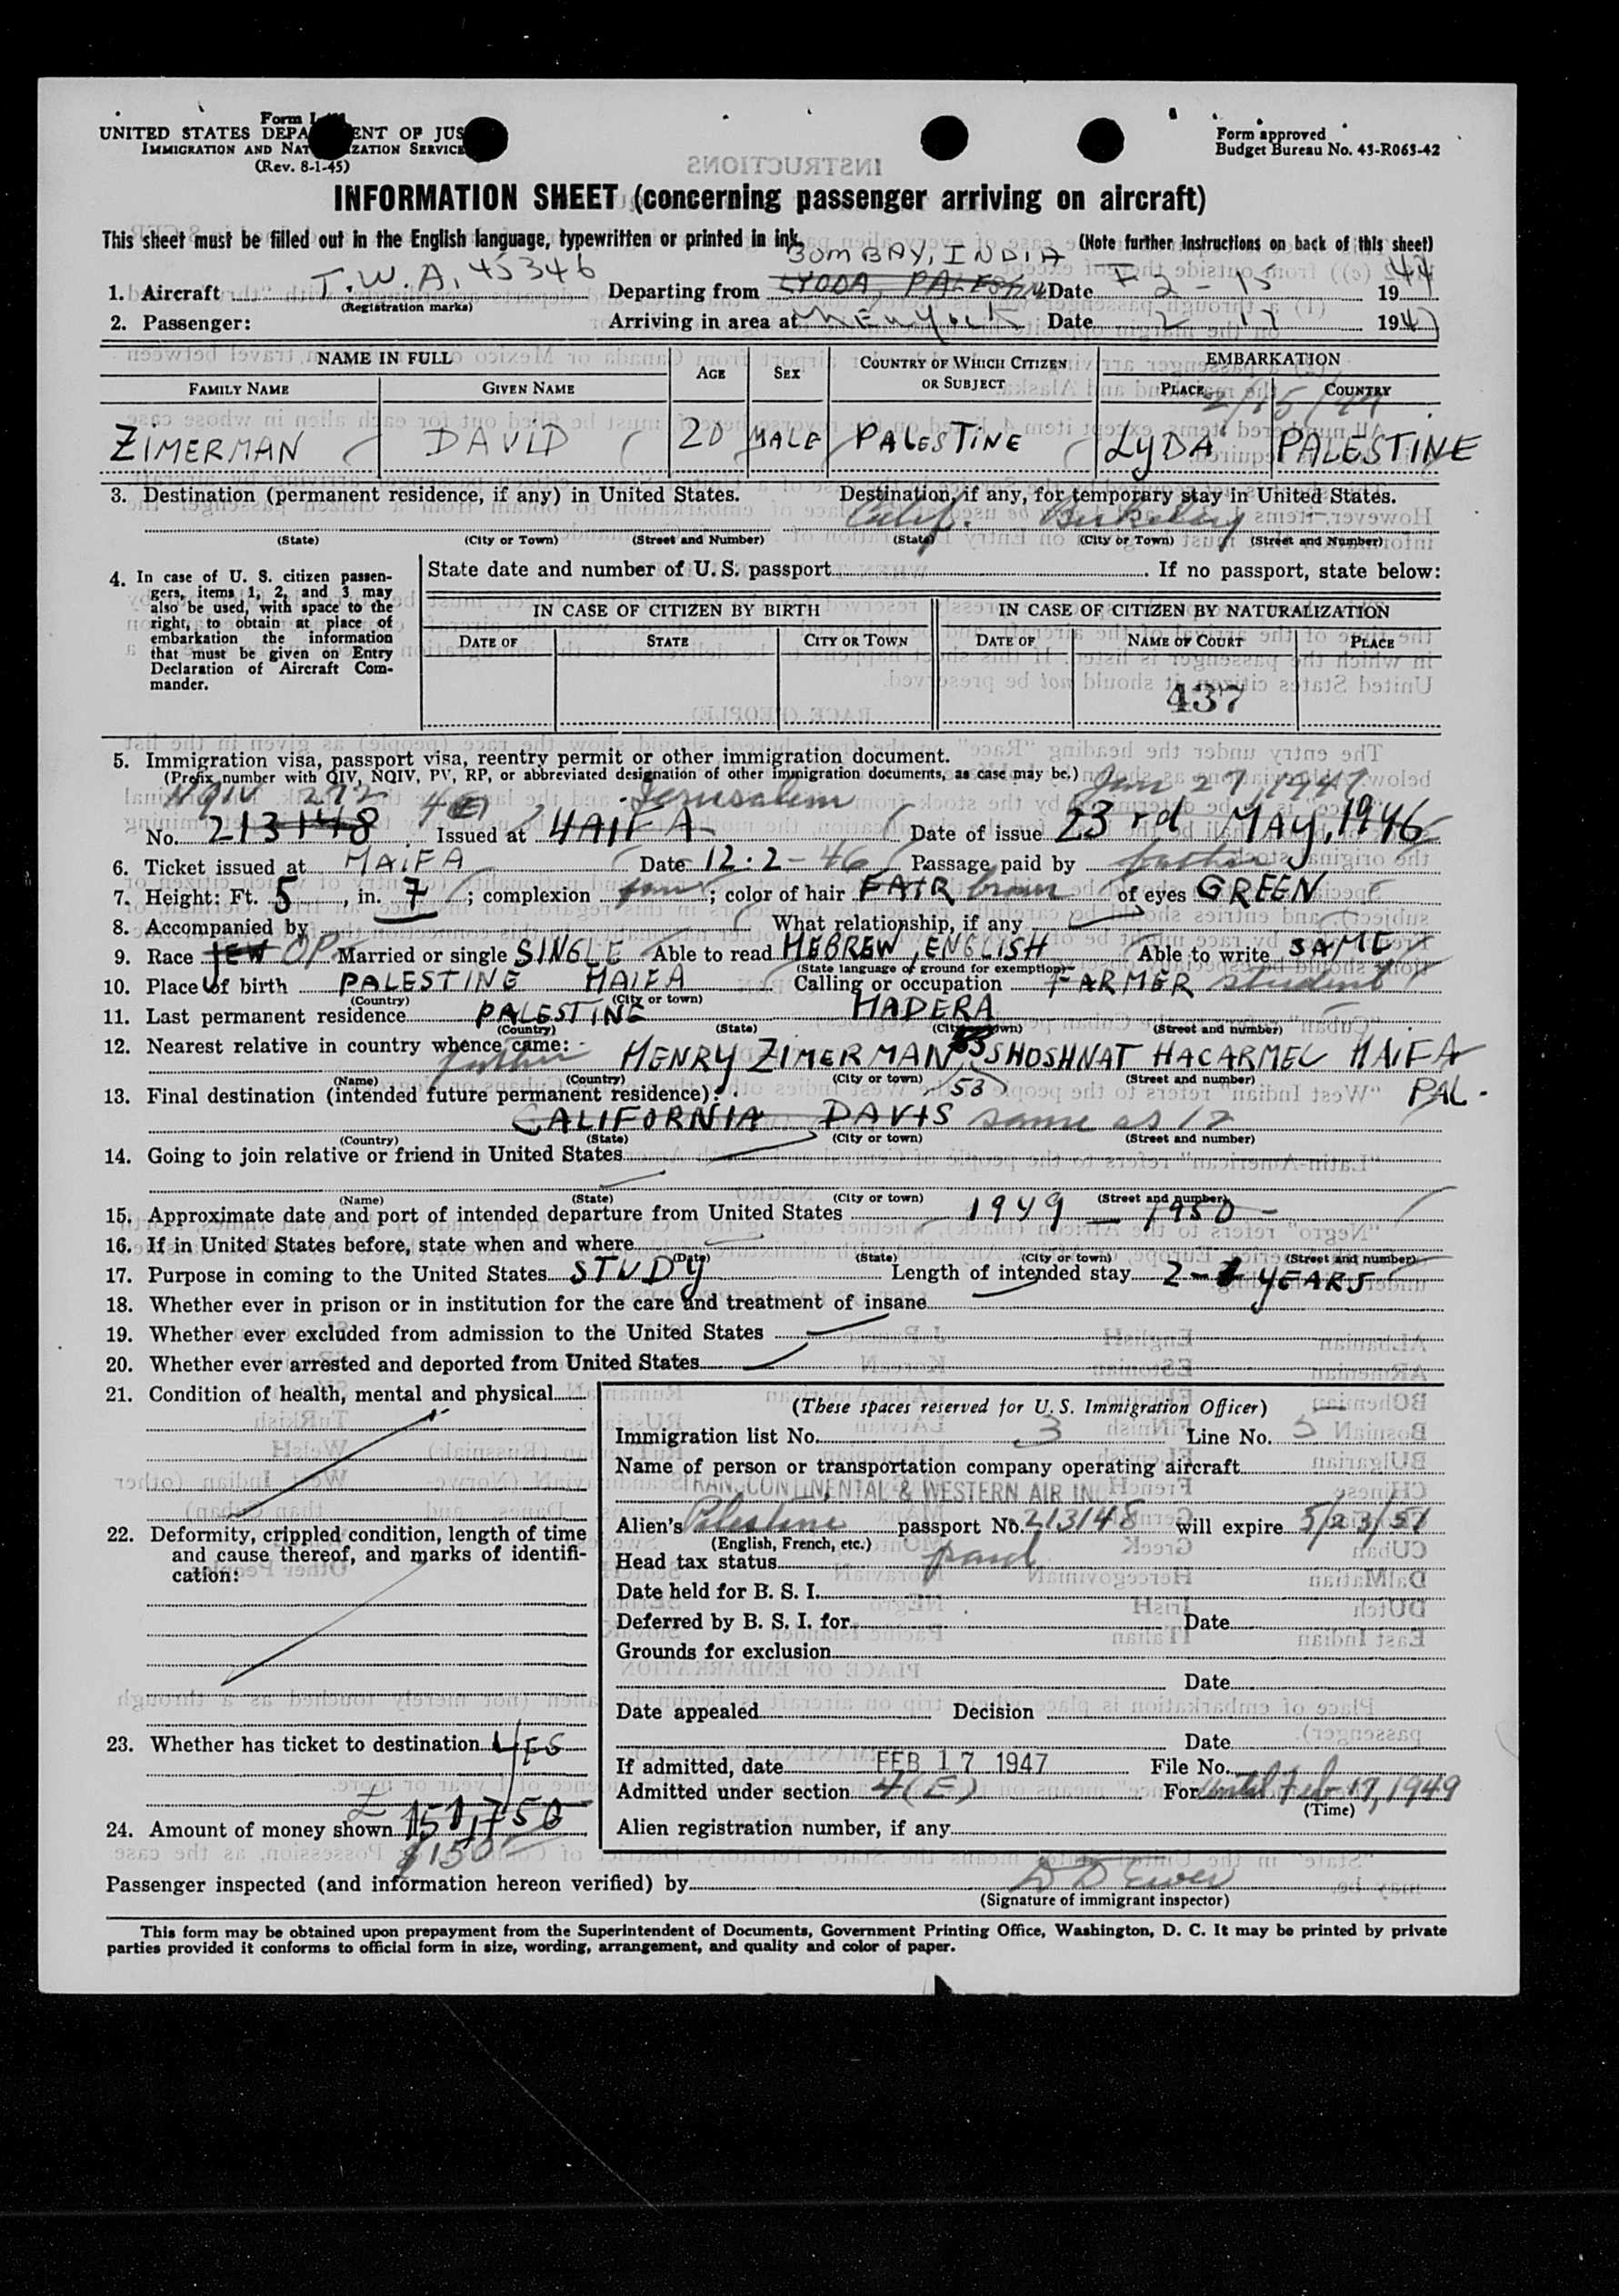 Form I-
UNITED STATES DEPA ENT OF JUS
IMMIGRATION AND NAT IZATION SERVICE
(Rev. 8-1-45)
Form approved
Budget Bureau No. 43-R063-42
INSTRUCTIONS
INFORMATION SHEET (concerning passenger arriving on aircraft)
This sheet must be filled out in the English language, typewritten or printed in ink.
(Note further instructions on back of this sheet)
BOMBAY, INDIA
1. Aircraft T.W.A. 45346 Departing from LYDDA, PALESTINE Date 2-15 1947
(Registration marks)
2. Passenger: Arriving in area at New York Date 2 17 1947
NAME IN FULL AGE SEX COUNTRY OF WHICH CITIZEN OR SUBJECT EMBARKATION
FAMILY NAME GIVEN NAME PLACE COUNTRY
2/15/47
ZIMERMAN DAVID 20 MALE PALESTINE LYDA PALESTINE
3. Destination (permanent residence, if any) in United States. Destination, if any, for temporary stay in United States.
Calif. Berkeley
(State) (City or Town) (Street and Number) (State) (City or Town) (Street and Number)
4. In case of U. S. citizen passen-
gers, items 1, 2, and 3 may
also be used, with space to the
right, to obtain at place of
embarkation the information
that must be given on Entry
Declaration of Aircraft Com-
mander.
State date and number of U. S. passport If no passport, state below:
IN CASE OF CITIZEN BY BIRTH IN CASE OF CITIZEN BY NATURALIZATION
DATE OF STATE CITY OR TOWN DATE OF NAME OF COURT PLACE
437
5. Immigration visa, passport visa, reentry permit or other immigration document.
(Prefix number with QIV, NQIV, PV, RP, or abbreviated designation of other immigration documents, as case may be.)
NQIV 272 4(E) Jerusalem Jan 27, 1947
No. 213148 Issued at HAIFA Date of issue 23rd MAY, 1946
6. Ticket issued at HAIFA Date 12.2-46 Passage paid by father
7. Height: Ft. 5, in. 7; complexion fair; color of hair FAIR brown of eyes GREEN
8. Accompanied by What relationship, if any
9. Race JEW OP Married or single SINGLE Able to read HEBREW, ENGLISH Able to write SAME
(State language or ground for exemption)
10. Place of birth PALESTINE HAIFA Calling or occupation FARMER student
(Country) (City or town)
11. Last permanent residence PALESTINE HADERA
(Country) (State) (City or town) (Street and number)
12. Nearest relative in country whence came:
father HENRY ZIMERMAN 53 SHOSHNAT HACARMEL HAIFA
(Name) (Country) (City or town) 53 (Street and number) PAL.
13. Final destination (intended future permanent residence):
CALIFORNIA DAVIS same as 12
(Country) (State) (City or town) (Street and number)
14. Going to join relative or friend in United States
(Name) (State) (City or town) (Street and number)
15. Approximate date and port of intended departure from United States 1949 - 1950 -
16. If in United States before, state when and where
(Date) (State) (City or town) (Street and number)
17. Purpose in coming to the United States STUDY Length of intended stay 2- YEARS
18. Whether ever in prison or in institution for the care and treatment of insane
19. Whether ever excluded from admission to the United States
20. Whether ever arrested and deported from United States
21. Condition of health, mental and physical
22. Deformity, crippled condition, length of time
and cause thereof, and marks of identifi-
cation:
23. Whether has ticket to destination YES
24. Amount of money shown £ 151,750
$150
(These spaces reserved for U. S. Immigration Officer)
Immigration list No. 3 Line No. 5
Name of person or transportation company operating aircraft
TRANSCONTINENTAL & WESTERN AIR INC
Alien's Palestine passport No. 213148 will expire 5/23/51
(English, French, etc.)
Head tax status paid
Date held for B. S. I.
Deferred by B. S. I. for Date
Grounds for exclusion
Date
Date appealed Decision
Date
If admitted, date FEB 17 1947 File No.
Admitted under section 4(E) For until Feb 17, 1949
(Time)
Alien registration number, if any
Passenger inspected (and information hereon verified) by
(Signature of immigrant inspector)
This form may be obtained upon prepayment from the Superintendent of Documents, Government Printing Office, Washington, D. C. It may be printed by private
parties provided it conforms to official form in size, wording, arrangement, and quality and color of paper.